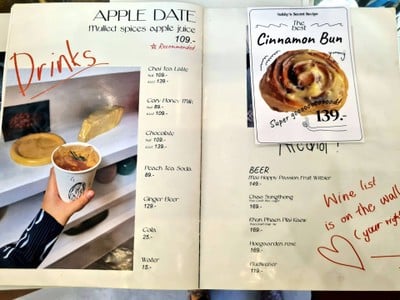 APPLE DATE
Mulled spices apple juice
109.-
☆ Recommended
Drinks
Chai Tea Latte
Hot 109.-
Iced 139.-
Hot 89.-
Iced 109.-
Chocolate
Hot 109.-
Iced 139.-
Peach Tea Soda
89.-
Ginger Beer
129.-
Cola
25.-
Water
15.-
Nobby's Secret Recipe
The best
Cinnamon Bun
139.-
Alcohol!
BEER
Mai Happy Passion Fruit Witbier
149.-
169.-
169.-
Hoegaarden rose
169.-
Budweiser
119.-
Wine list
is on the wall
(your right